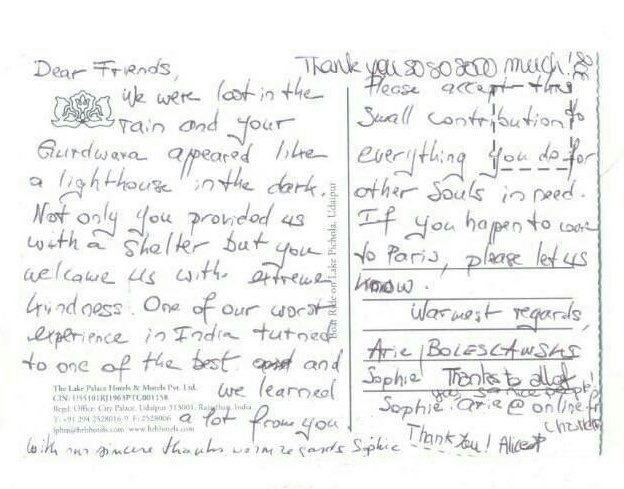 Dear Friends,
We were lost in the
rain and your
Gurdwara appeared like
a lighthouse in the dark.
Not only you provided us
with a shelter but you
welcome us with extreme
kindness. One of our worst
experience in India turned
to one of the best and
we learned
a lot from you
With our sincere thanks warm regards Sophie
The Lake Palace Hotels & Motels Pvt. Ltd.
CIN: U55101RJ1963PTC001158
Regd. Office: City Palace, Udaipur 313001, Rajasthan, India
T: +91 294 2528016-9 F: 2528006
www.hrhhotels.com
Boat Ride on Lake Pichola, Udaipur
Thank you so so sooo much!
Please accept this
small contribution to
everything you do for
other souls in need.
If you happen to come
to Paris, please let us
know.
Warmest regards,
Arie BOLESLAWSKI
Sophie Thanks to all of
you
Sophie.arie@online.fr
Thank You! Alice